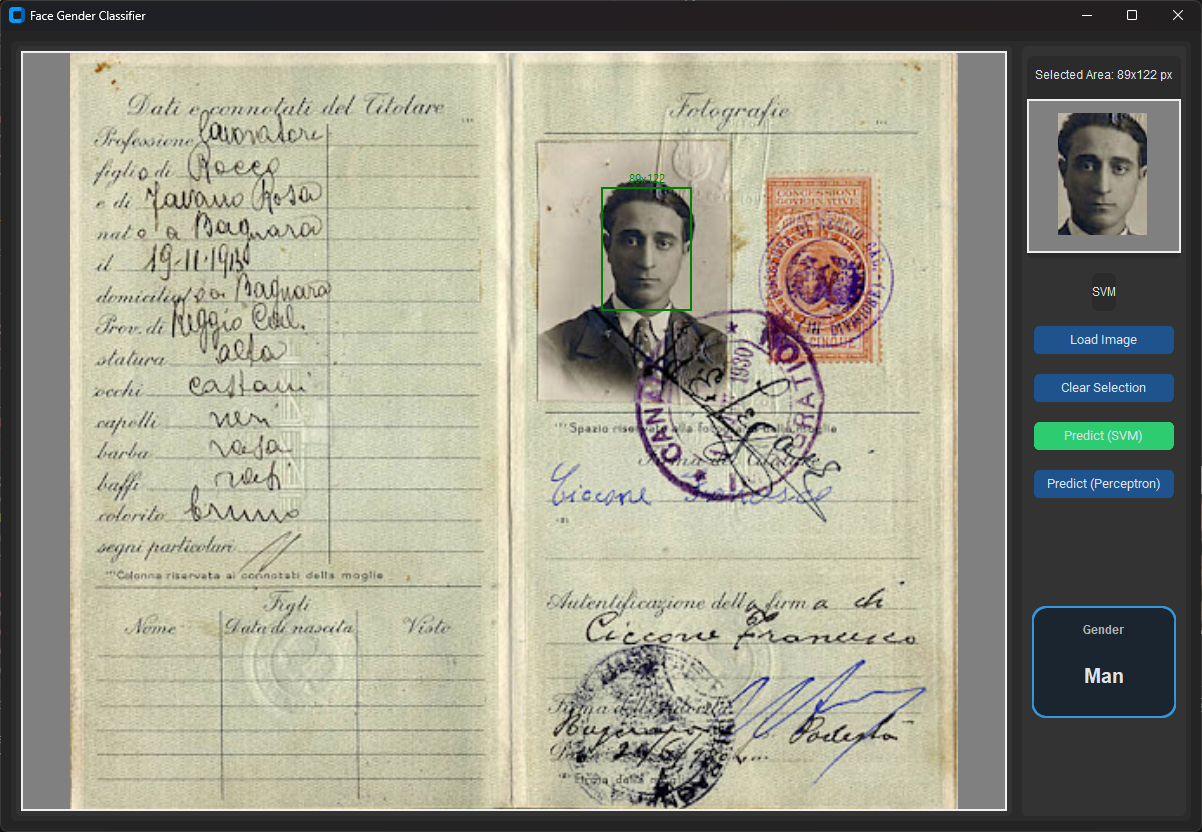 Face Gender Classifier
Dati e connotati del Titolare
Professione lavoratore
figlio di Rocco
e di Zavano Rosa
nato a Bagnara
il 19-11-191
domiciliato a Bagnara
Prov. di Reggio Cal.
statura alta
occhi castani
capelli neri
barba rasa
baffi rasi
colorito bruno
segni particolari
Colonna riservata ai connotati della moglie
Figli
Nome Data di nascita Visto
Fotografie
89x122
CONCESSIONI
GOVERNATIVE
CINQUE
1930
Spazio riservato alla fotografia della moglie
Firma del Titolare
Ciccone Francesco
Autenticazione della firma di
Ciccone Francesco
Firma dell'Autorità
Podestà
Firma della moglie
Selected Area: 89x122 px
SVM
Load Image
Clear Selection
Predict (SVM)
Predict (Perceptron)
Gender
Man